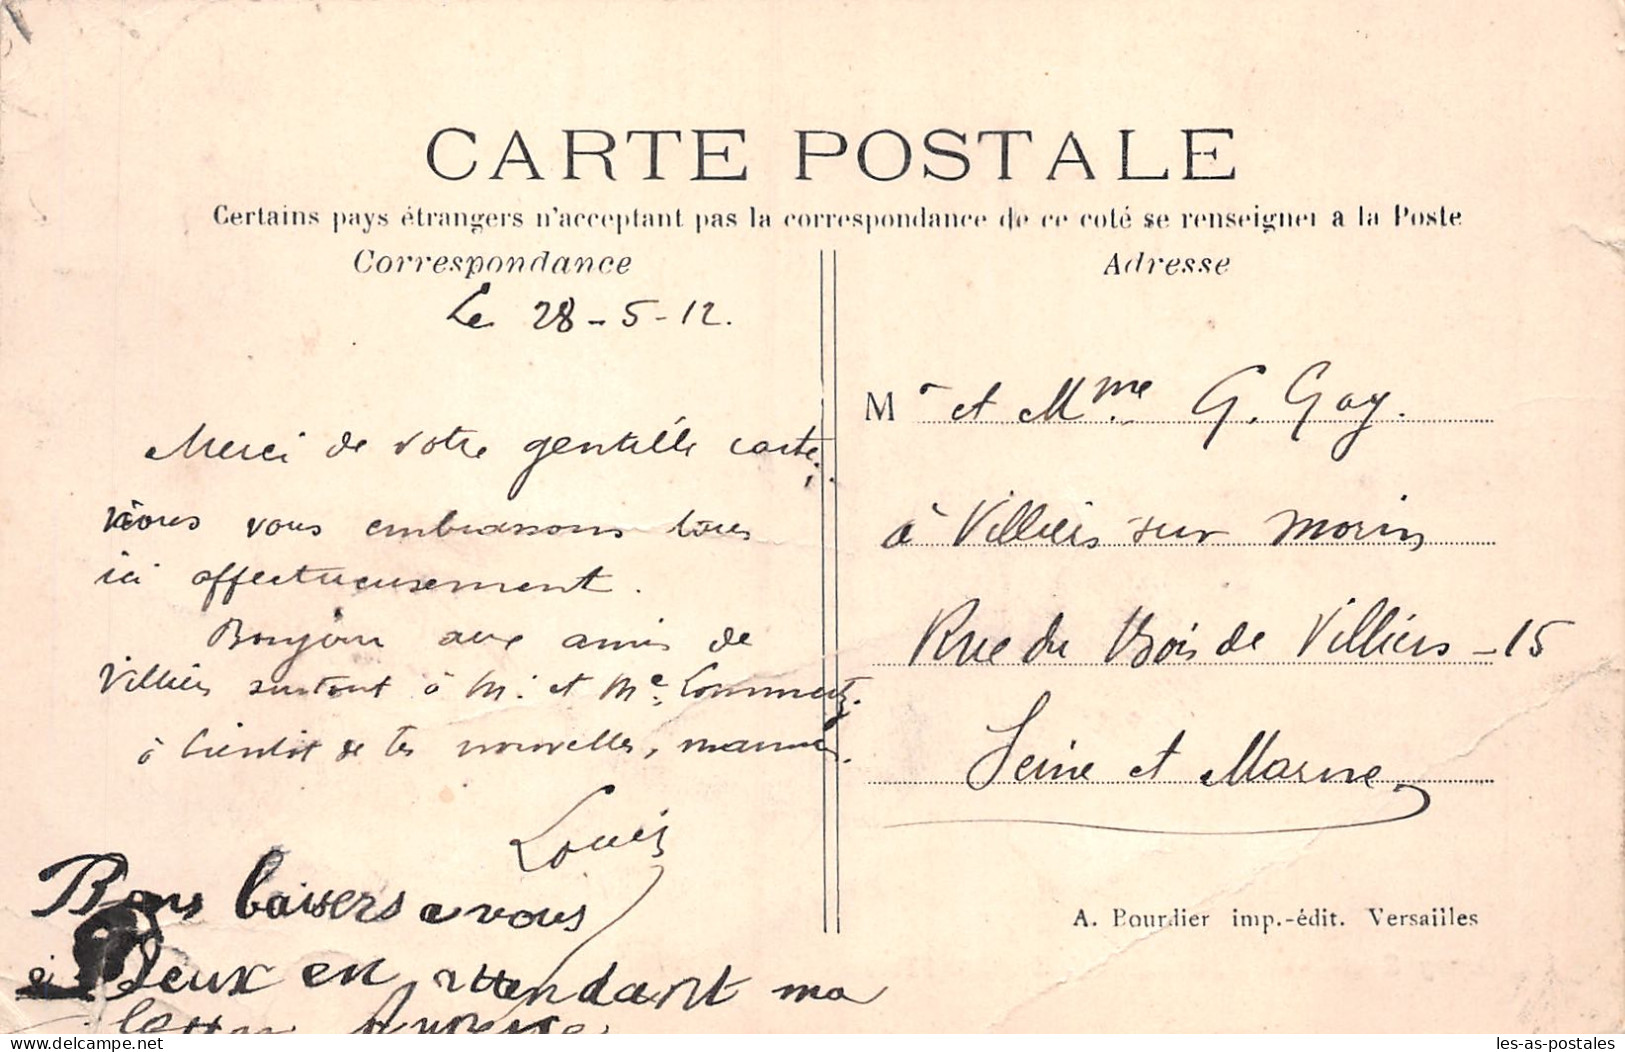 CARTE POSTALE
Certains pays étrangers n'acceptant pas la correspondance de ce coté se renseigner a la Poste
Correspondance
Le 28-5-12.
Merci de votre gentille carte.
Nous vous embrassons tous
ici affectueusement.
Bonjour aux amis de
Villiers surtout à M. et Me
à bientôt de tes nouvelles, maman.
Louis
Bons baisers a vous
Deux en attendant ma
Adresse
Mr et Mme G. Gay.
à Villiers sur Morin
Rue du Bois de Villiers - 15
Seine et Marne
A. Bourdier imp.-édit. Versailles
delcampe.net
les-as-postales